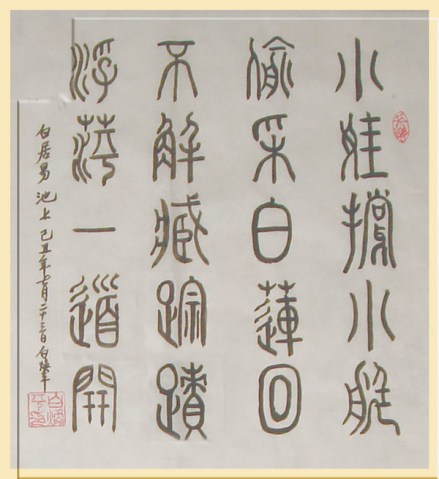 小娃撐小艇
偷采白蓮回
不解藏蹤蹟
浮萍一道開
白居易 池上 己丑年七月二十三日白